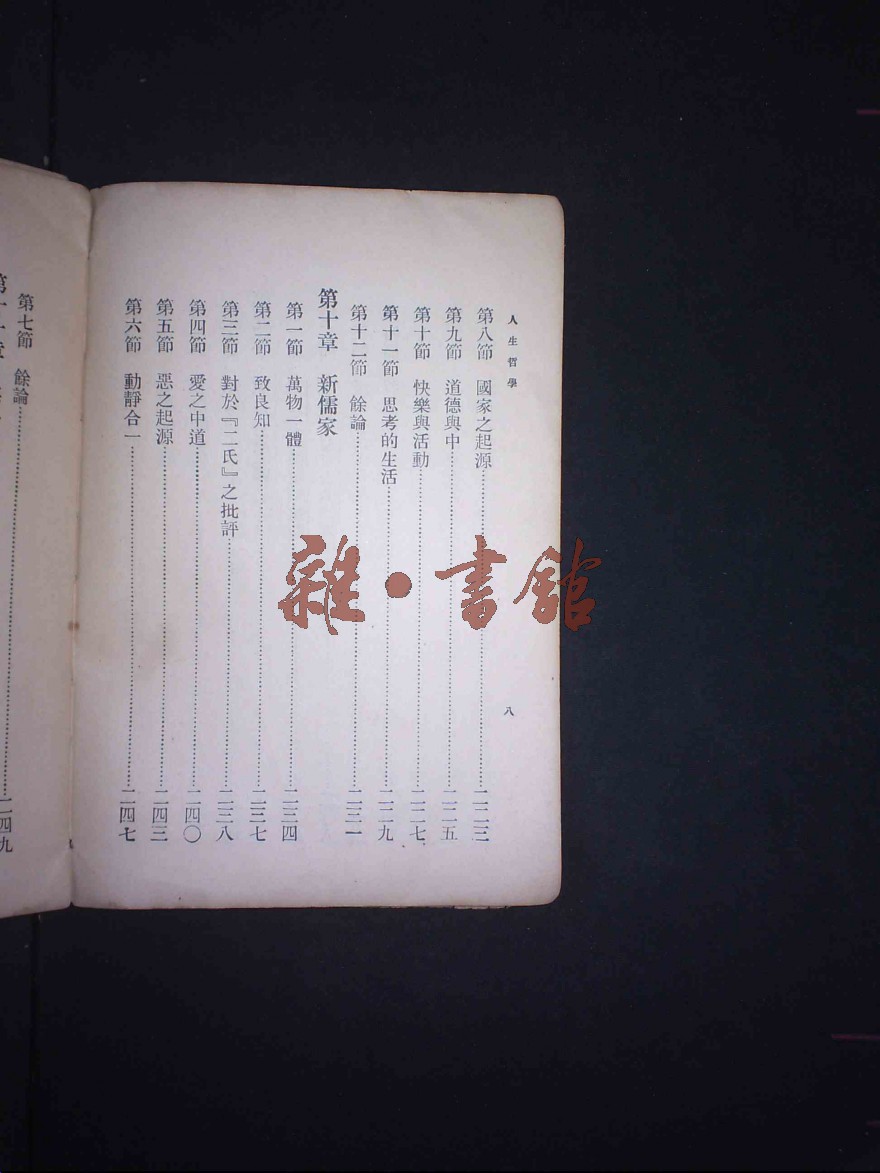 人生哲學
八
第八節　國家之起源……二二三
第九節　道德與中……二二五
第十節　快樂與活動……二二七
第十一節　思考的生活……二二九
第十二節　餘論……二三一
第十章　新儒家
第一節　萬物一體……二三四
第二節　致良知……二三七
第三節　對於『二氏』之批評……二三八
第四節　愛之中道……二四〇
第五節　惡之起源……二四三
第六節　動靜合一……二四七
第七節　餘論……二四九
雜·書館